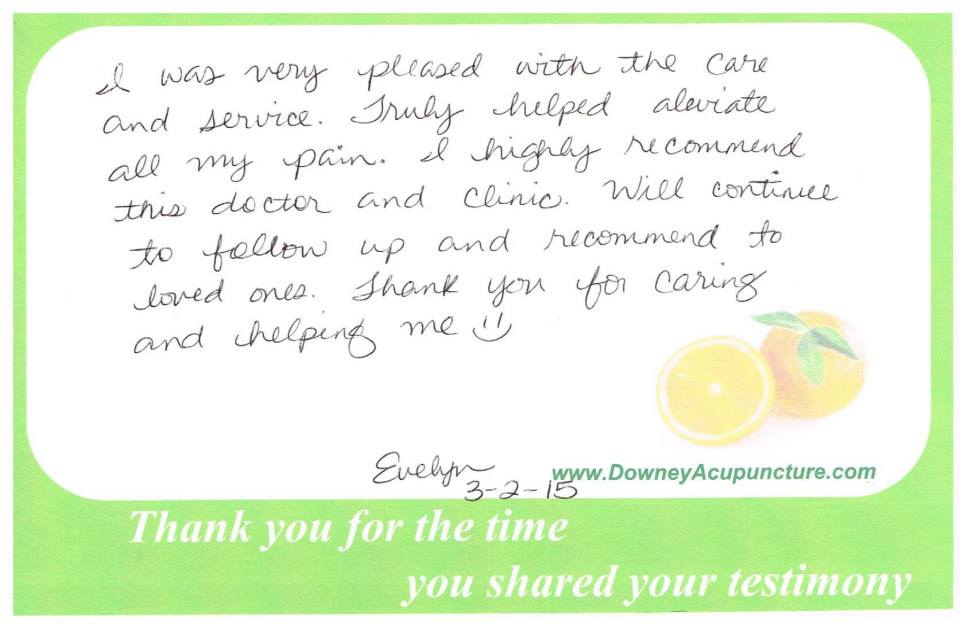 I was very pleased with the care
and service. Truly helped aleviate
all my pain. I highly recommend
this doctor and clinic. Will continue
to follow up and recommend to
loved ones. Thank you for caring
and helping me
Evelyn
3-2-15
www.DowneyAcupuncture.com
Thank you for the time
you shared your testimony